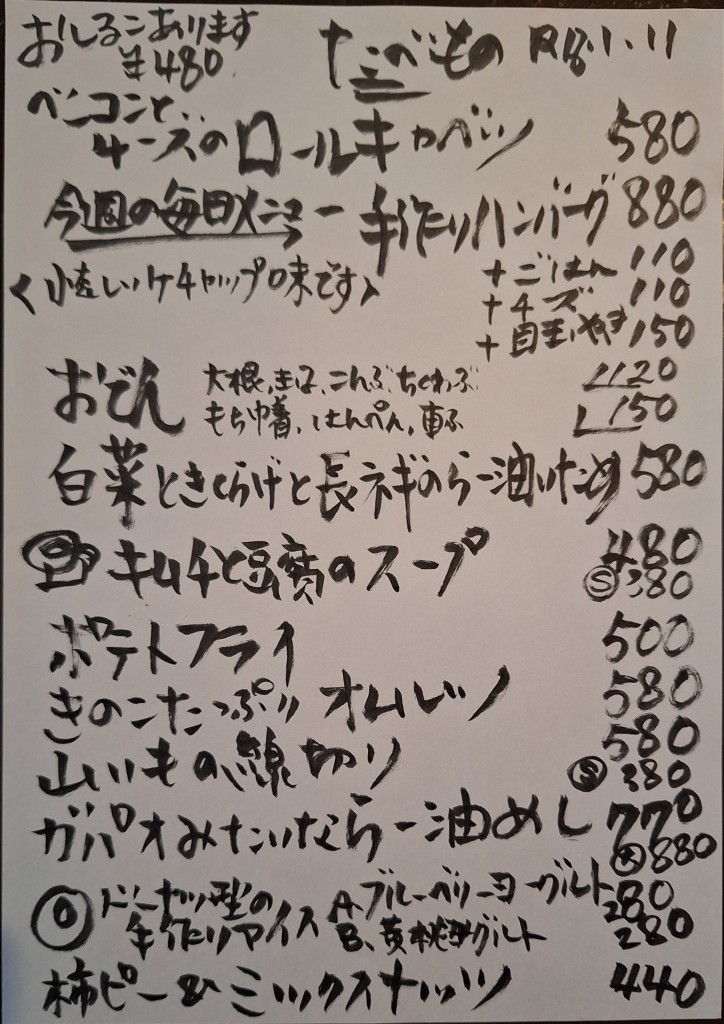 おしるこあります
¥480
たべもの R8.1.11
ベーコンと
チーズのロールキャベツ 580
今週の毎日メニュー 手作りハンバーグ 880
＜懐しいケチャップ味です＞ +ごはん 110
+チーズ 110
+目玉やき 150
おでん 大根、玉子、こんぶ、ちくわぶ 120
もち巾着、はんぺん、車ふ 150
白菜ときくらげと長ネギのラー油いため 580
キムチと豆腐のスープ 480
Ⓢ380
ポテトフライ 500
きのこたっぷり オムレツ 580
山いもの線切り 580
Ⓢ380
ガパオみたいならー油めし 770
大880
ドーナッツ型の A、ブルーベリーヨーグルト 280
手作りアイス B、黄桃ヨーグルト 280
柿ピー&ミックスナッツ 440